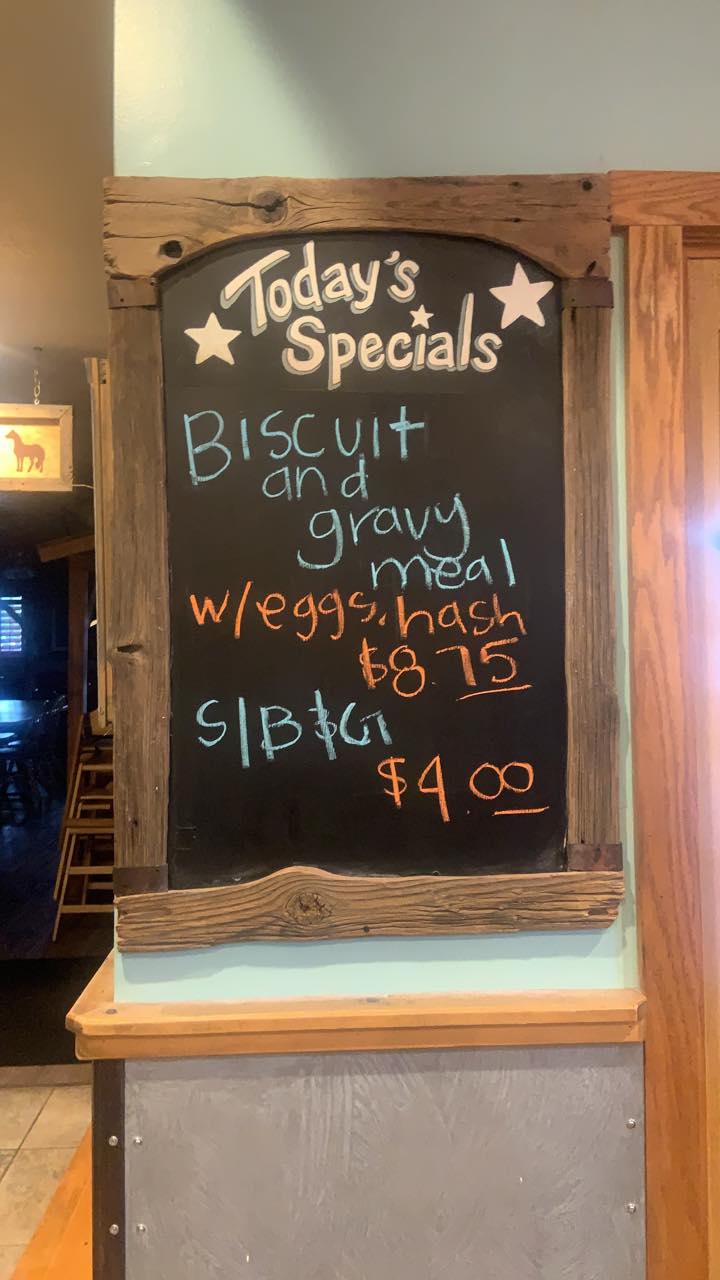 Today's
Specials
Biscuit
and
gravy
meal
w/eggs, hash
$8.75
S/B&G
$4.00